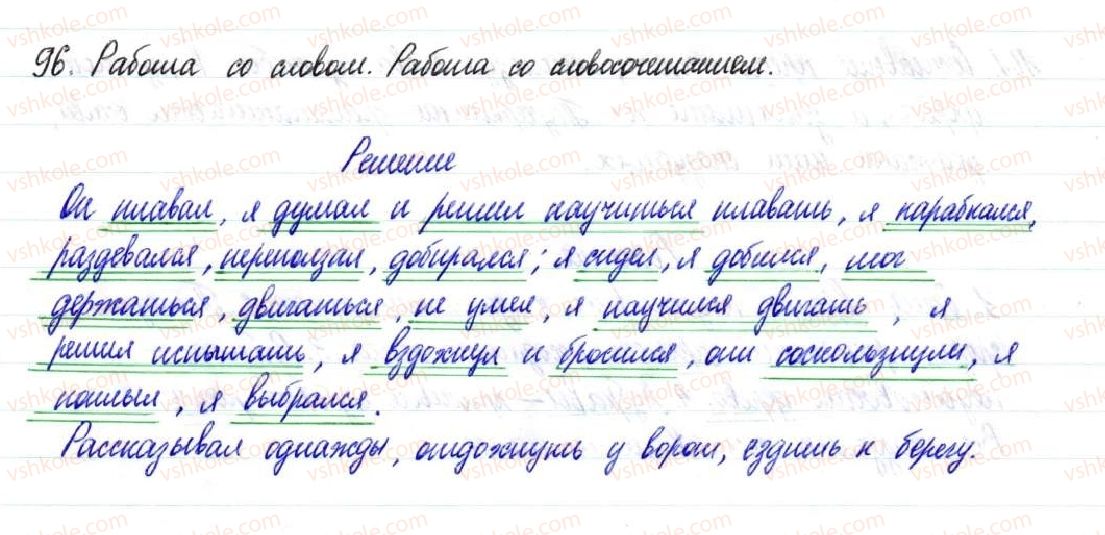 96. Работа со словом. Работа со словосочетанием.
Решение
Он плавал, я думал и решил научиться плавать, я карабкался,
раздевался, переползал, добирался; я сидел, я добился, мог
держаться, двигаться, не умел, я научился двигать, я
решил испытать, я вздохнул и бросился, они соскользнули, я
поплыл, я выбрался.
Рассказывал однажды, отдохнуть у ворот, ездить к берегу.